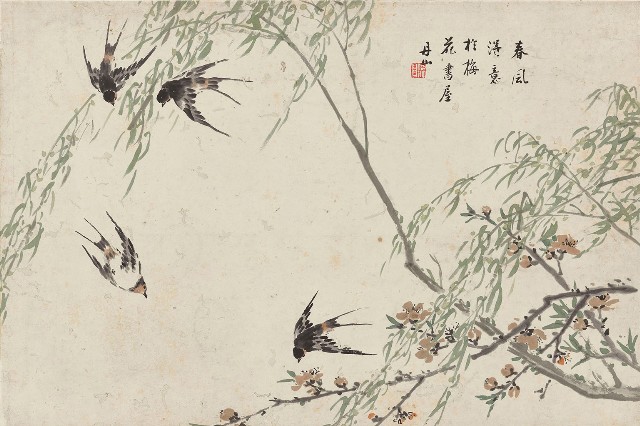 春風
得意
於梅
花書屋
丹山